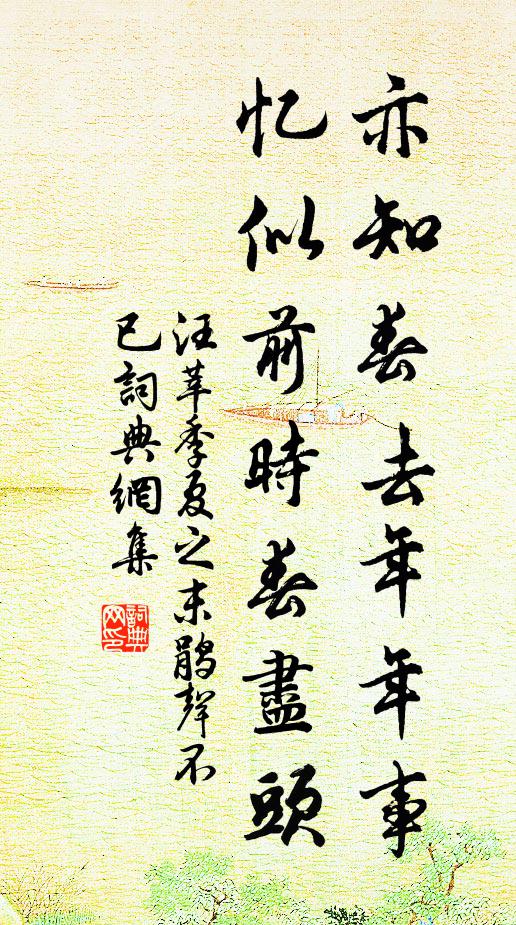 亦知春去年年事
忆似前時春盡頭
汪莘季夏之末鵑聲不
已詞典網集
詞典
网印